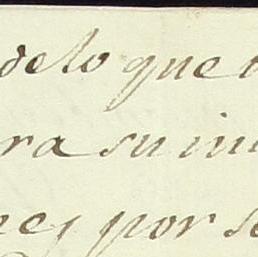 delo que
ra su in
nes por se